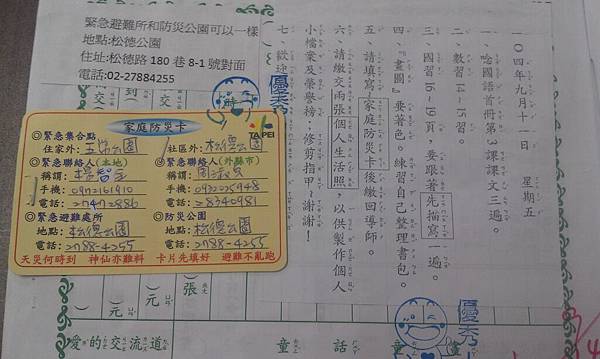 緊急避難所和防災公園可以一樣
地點:松德公園
住址:松德路 180 巷 8-1 號對面
電話:02-27884255
一〇四年九月十一日 星期五
一、唸國語首冊第3課課文三遍。
二、數習14～15習。
三、國習16～19頁，要跟著先描寫一遍。
四、「畫圖」要著色。練習自己整理書包。
五、請填寫「家庭防災卡後繳回導師。
六、請繳交兩張個人生活照，以供製作個人
小檔案及榮譽榜，修剪指甲~謝謝！
七、歡迎
優秀
家庭防災卡
TAIPEI
◎緊急集合點
住家外:五常公園
社區外:松德公園
◎緊急聯絡人(本地)
稱謂:楊智全
手機:0912161910
電話:27472886
◎緊急聯絡人(外縣市)
稱謂:
手機:0932225948
電話:28340981
◎緊急避難處所
地點:松德公園
電話:2788-4255
◎防災公園
地點:松德公園
電話:2788-4255
天災何時到 神仙亦難料 卡片先填好 避難不亂跑
張
)元
)元
優秀
愛的交流道
童話